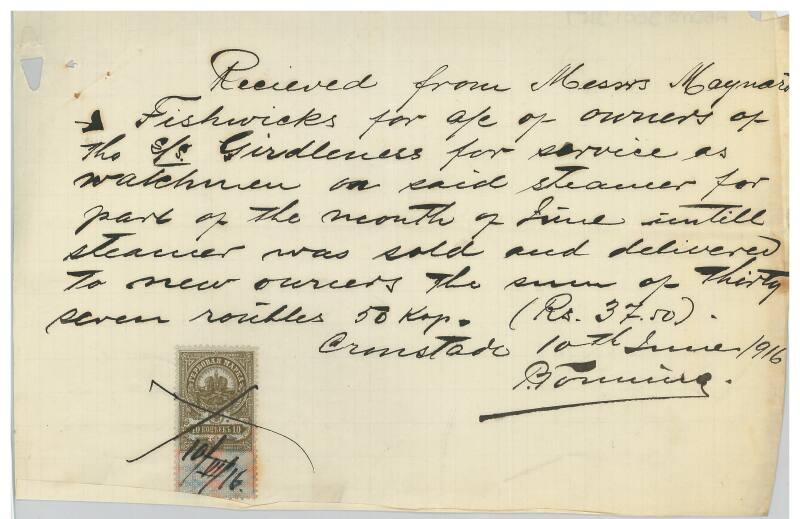 Recieved from Messrs Maynard
& Fishwicks for a/c of owners of
the S/S. Girdleness for service as
watchmen on said steamer for
part of the month of June untill
steamer was sold and delivered
to new owners the sum of thirty
seven roubles 50 Kop. (Rs. 37.50).
Cronstadt 10th June 1916
ГЕРБОВАЯ МАРКА
10 КОПѢЕКЪ 10
10/VI/16.